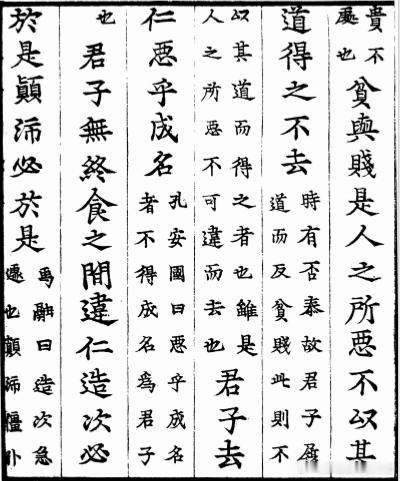 貴不處也貧與賤是人之所惡不以其
道得之不去時有否泰故君子履道而反貧賤此則不
以其道而得之者也雖是人之所惡不可違而去也君子去
仁惡乎成名孔安國曰惡乎成名者不得成名爲君子
也君子無終食之間違仁造次必
於是顛沛必於是馬融曰造次急遽也顛沛僵仆